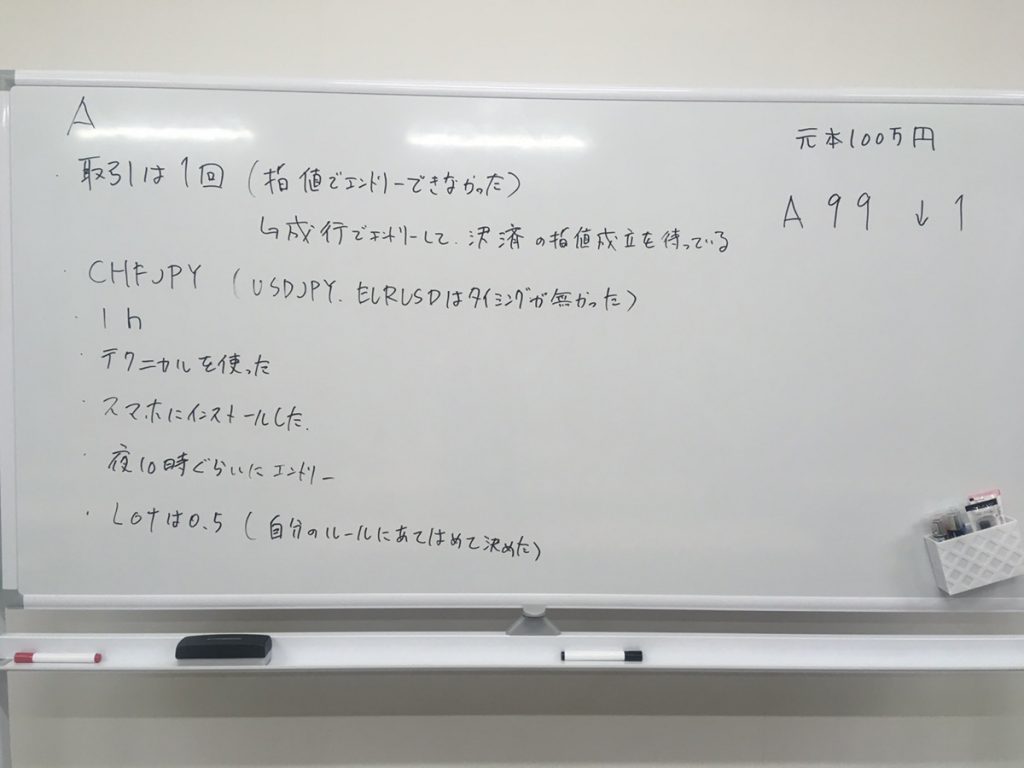 A
・取引は1回(指値でエントリーできなかった)
↳成行でエントリーして、決済の指値成立を待っている
・CHFJPY(USDJPY、EURUSDはタイミングが無かった)
・1h
・テクニカルを使った
・スマホにインストールした.
・夜10時ぐらいにエントリー
・Lotは0.5(自分のルールにあてはめて決めた)
元本100万円
A 99 ↓1